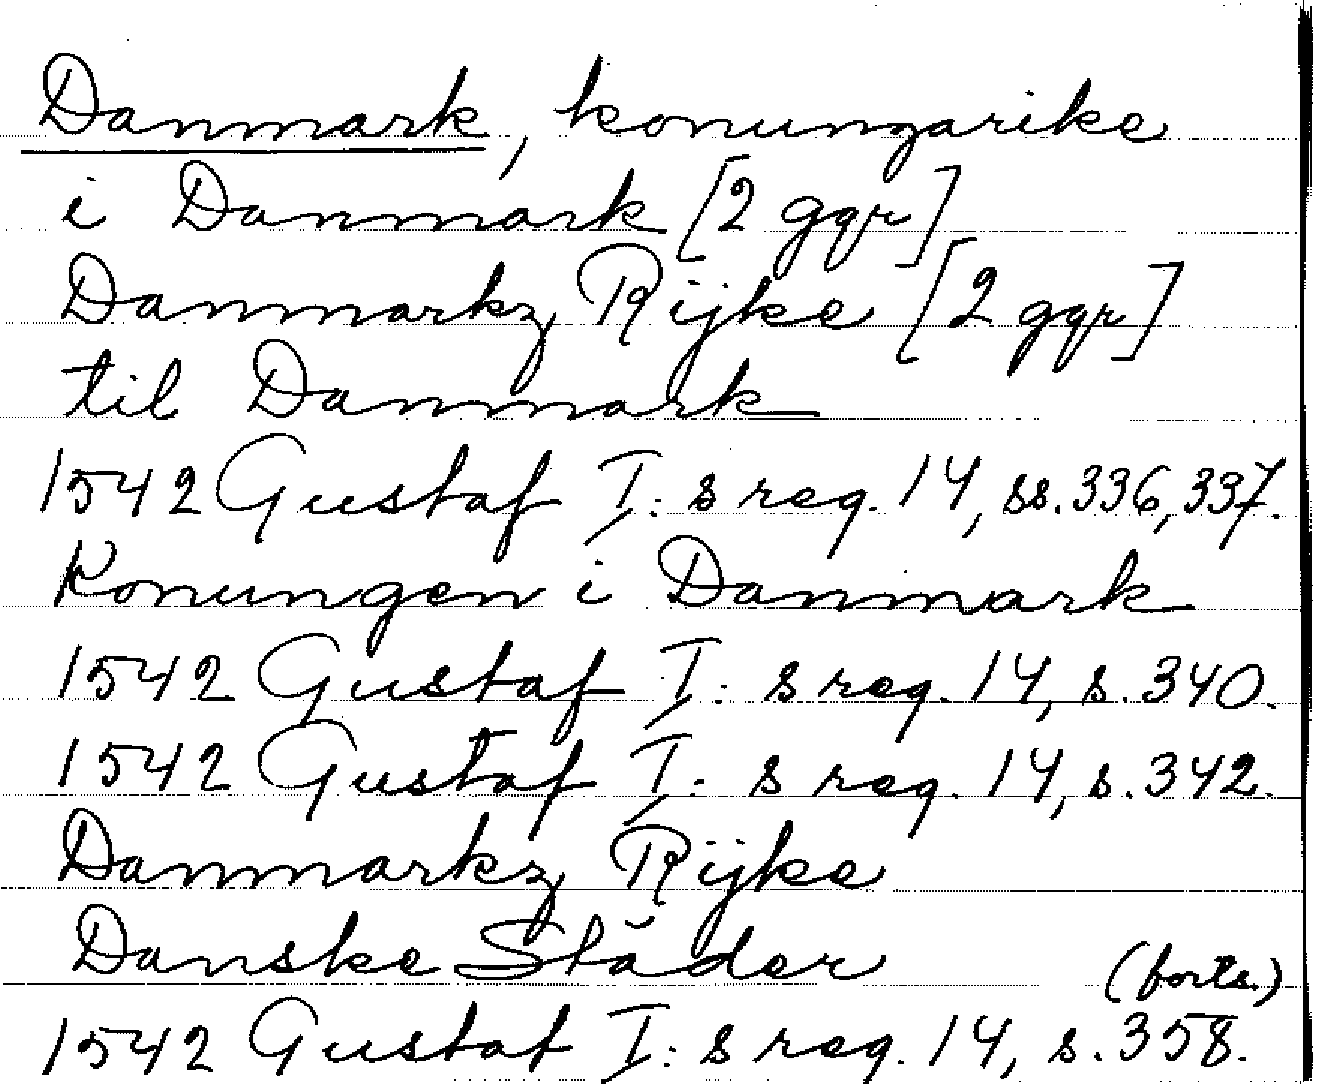 Danmark, konungarike
i Danmark [2 ggr]
Danmarkz Rijke [2 ggr]
til Danmark
1542 Gustaf I: s reg. 14, ss. 336, 337.
Konungen i Danmark
1542 Gustaf I: s reg. 14, s. 340.
1542 Gustaf I: s reg. 14, s. 342.
Danmarkz Rijke
Danske Städer
(forts.)
1542 Gustaf I: s reg. 14, s. 358.